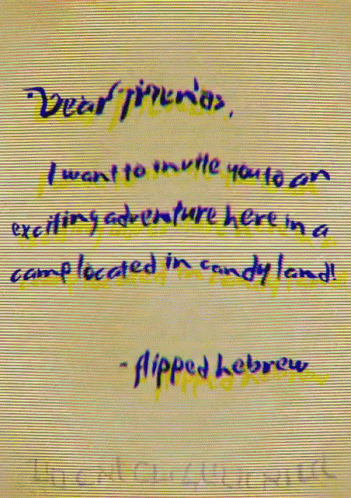 Dear friends,
I want to invite you to an
exciting adventure here in a
camp located in candy land!
- flipped hebrew